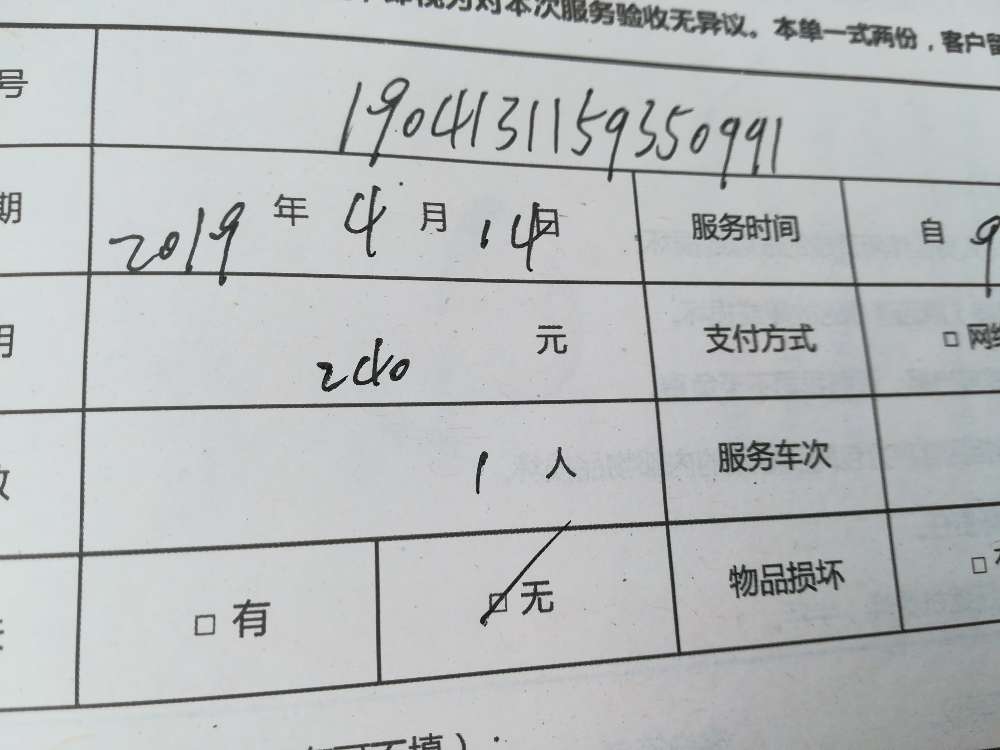 即视为对本次服务验收无异议。本单一式两份，客户留
号 1904131159350991
期 2019 年 4 月 14 日 服务时间 自 9
月 240 元 支付方式 □ 网络
1 人 服务车次
□ 有 □ 无 物品损坏 □
可不填）：